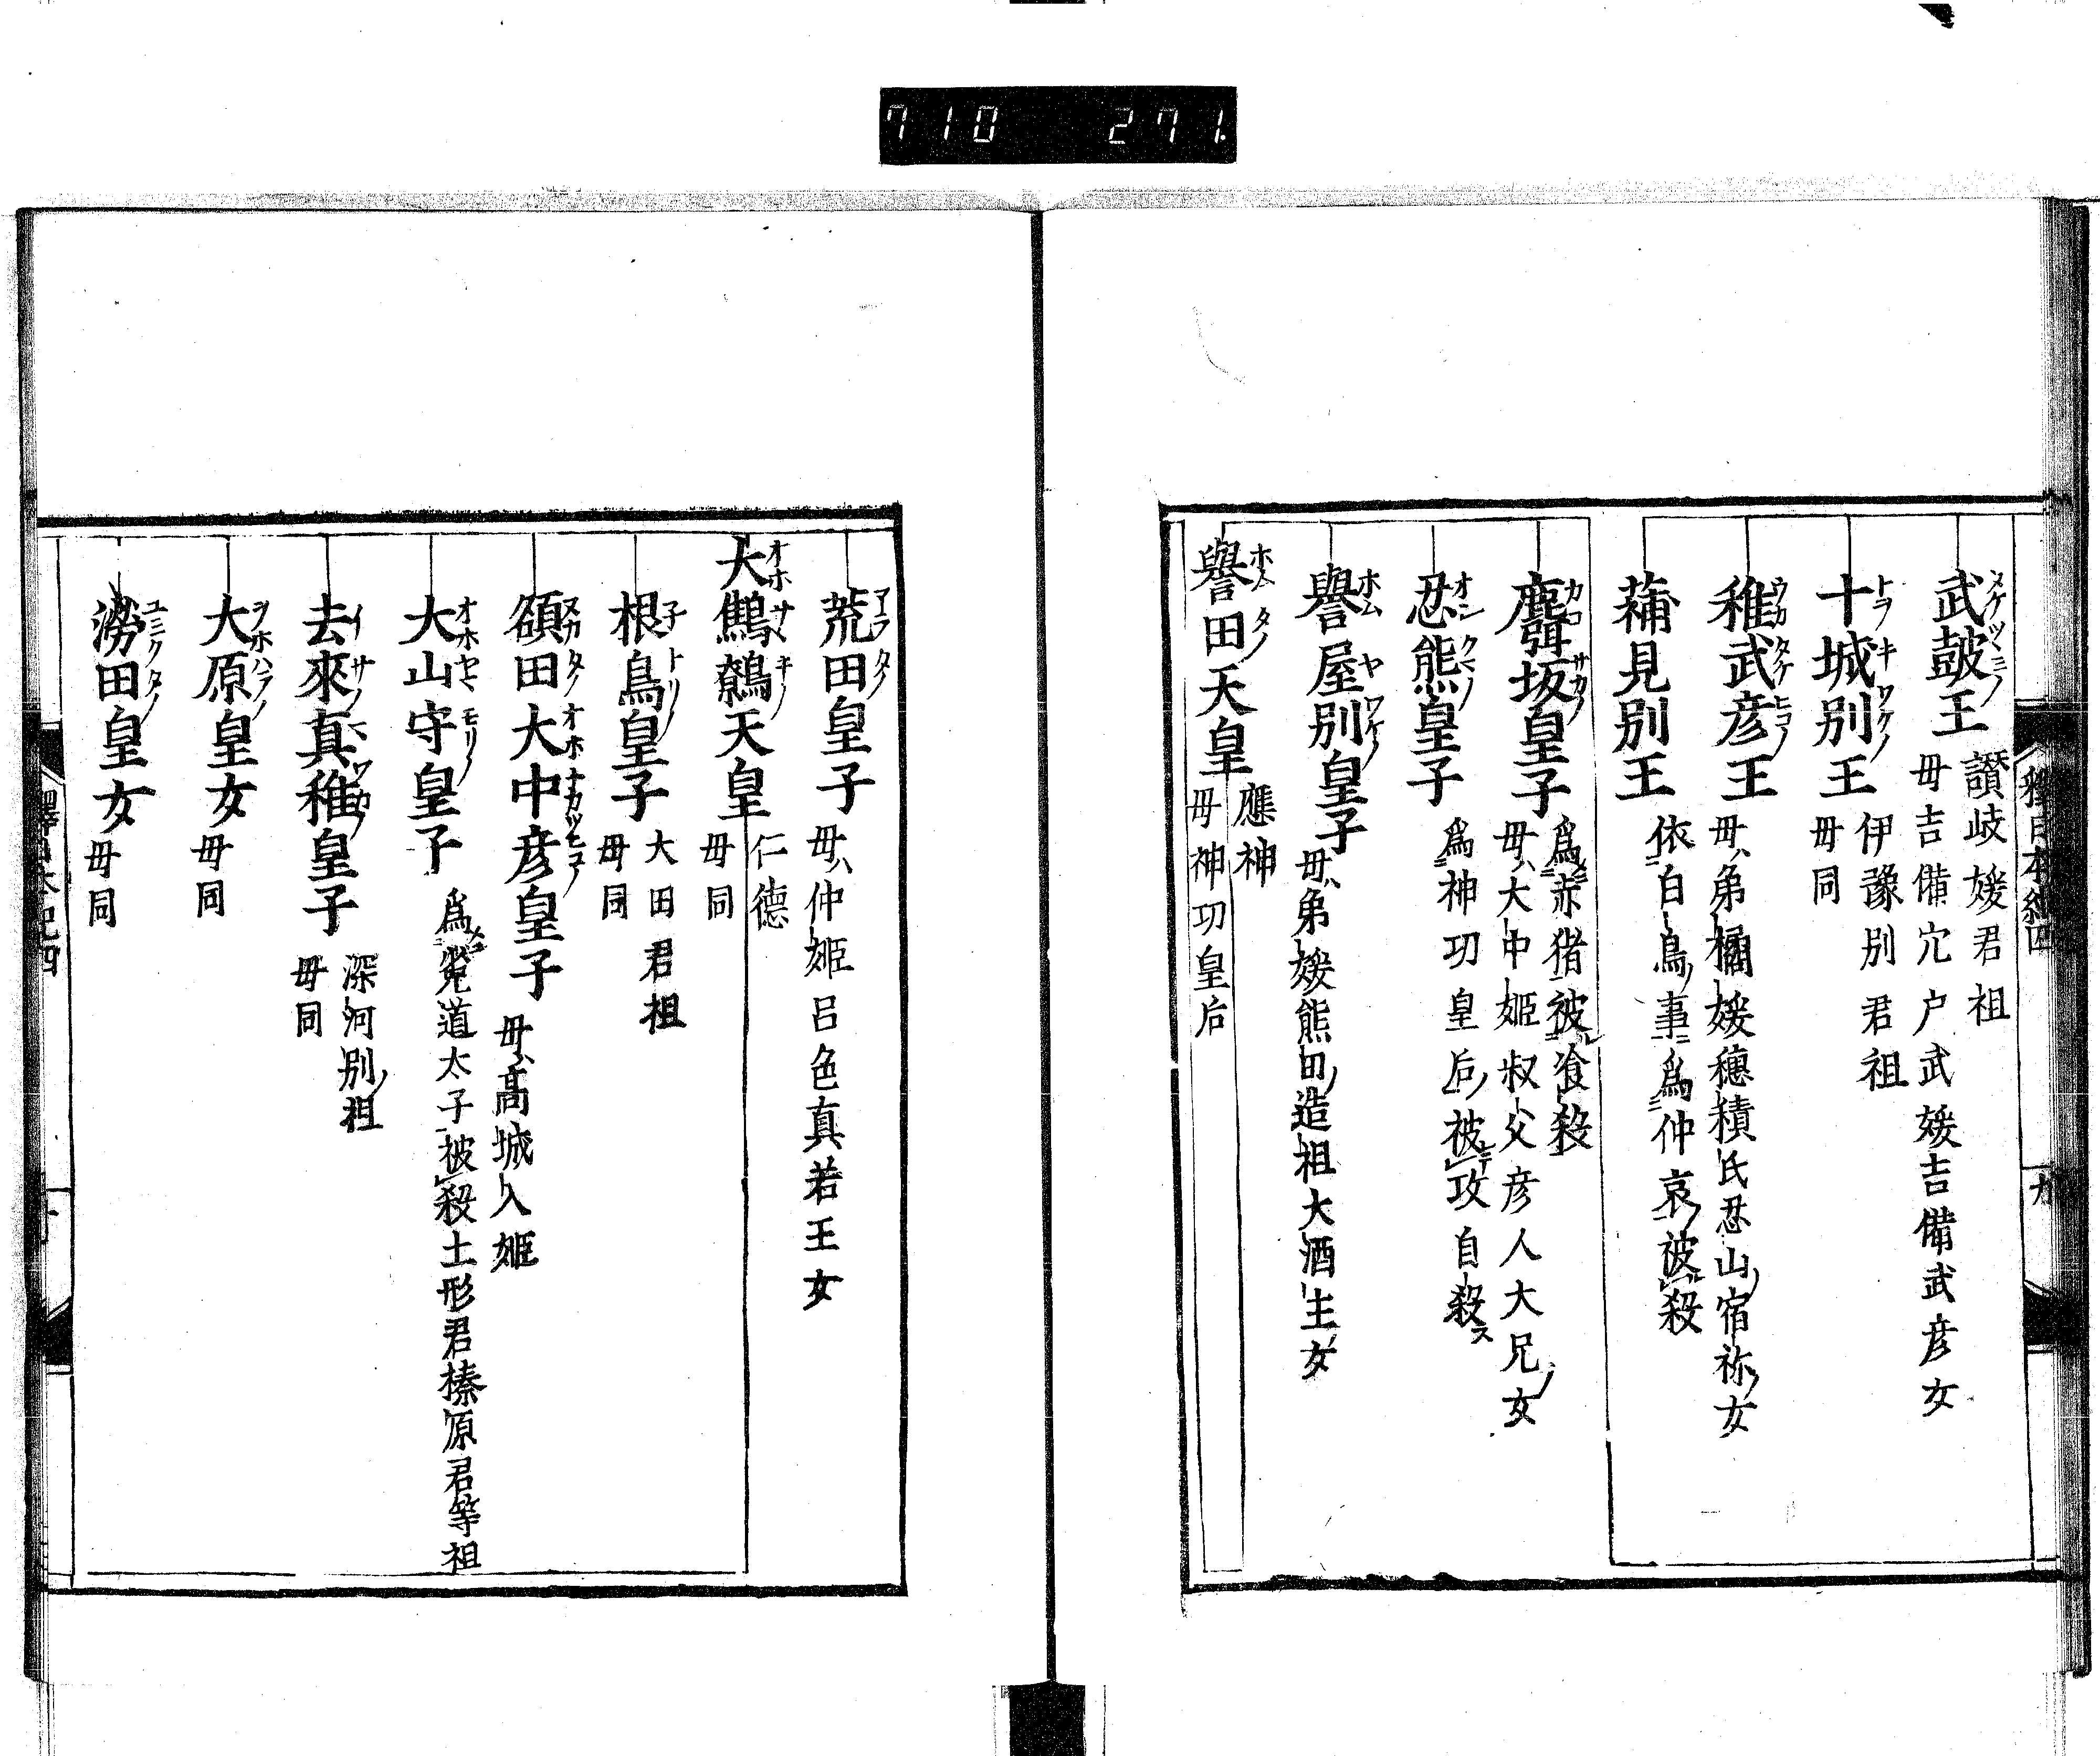 710 271
釋日本紀四
九
武皷王 讃岐媛君祖
毋吉備穴户武媛吉備武彦女
十城別王 伊豫別君祖
毋同
稚武彦王 毋弟橘媛穗積氏忍山宿祢女
蒲見別王 依白鳥事爲仲哀被殺
麛坂皇子 爲赤猪被食殺
毋大中姫叔父彦人大兄女
忍熊皇子 爲神功皇后被攻自殺
譽屋別皇子 毋弟媛熊田造祖大酒主女
譽田天皇 應神
毋神功皇后
荒田皇子 毋仲姫呂色真若王女
大鷦鷯天皇 仁德
毋同
根鳥皇子 大田君祖
毋同
額田大中彦皇子 毋高城入姫
大山守皇子 爲菟道太子被殺土形君榛原君等祖
去來真稚皇子 深河別祖
毋同
大原皇女 毋同
澇田皇女 毋同
釋日本紀四
十